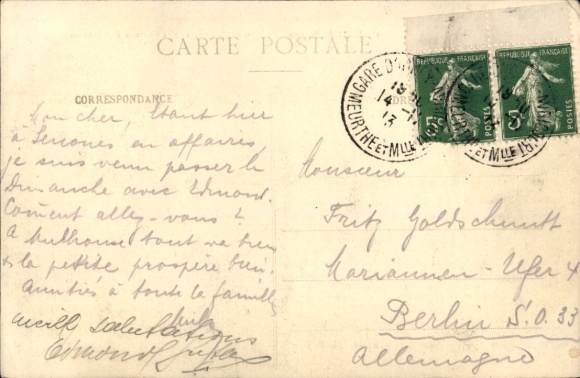 CARTE POSTALE
CORRESPONDANCE
Mon cher, étant hier
à Senones en affaires,
je suis venu passer le
Dimanche avec Edmond.
Coment allez-vous ?
A Mulhouse tout va bien
la petite prospère bien.
Amitiés à toute la famille
salutations
Edmond
REPUBLIQUE FRANÇAISE
REPUBLIQUE FRANÇAISE
5c
POSTES
5c
POSTES
GARE D'
14
13
MEURTHE ET MLLE
ET MLLE
Monsieur
Fritz Goldschmidt
Mariannen-Ufer 4
Berlin S.O. 33
Allemagne